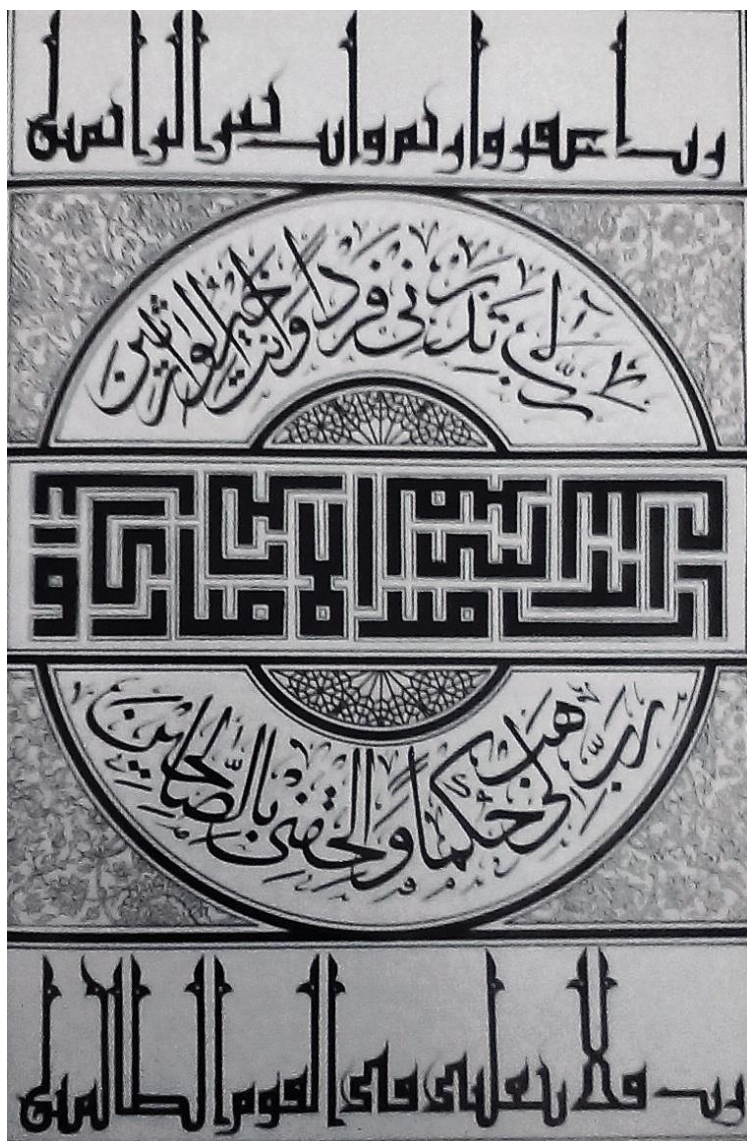 رب اغفر وارحم وانت خير الراحمين
رب لا تذرنی فردا وانت خیر الوارثین
رب هب لی حکما والحقنی بالصالحین
رب فلا تجعلنی فی القوم الظالمین